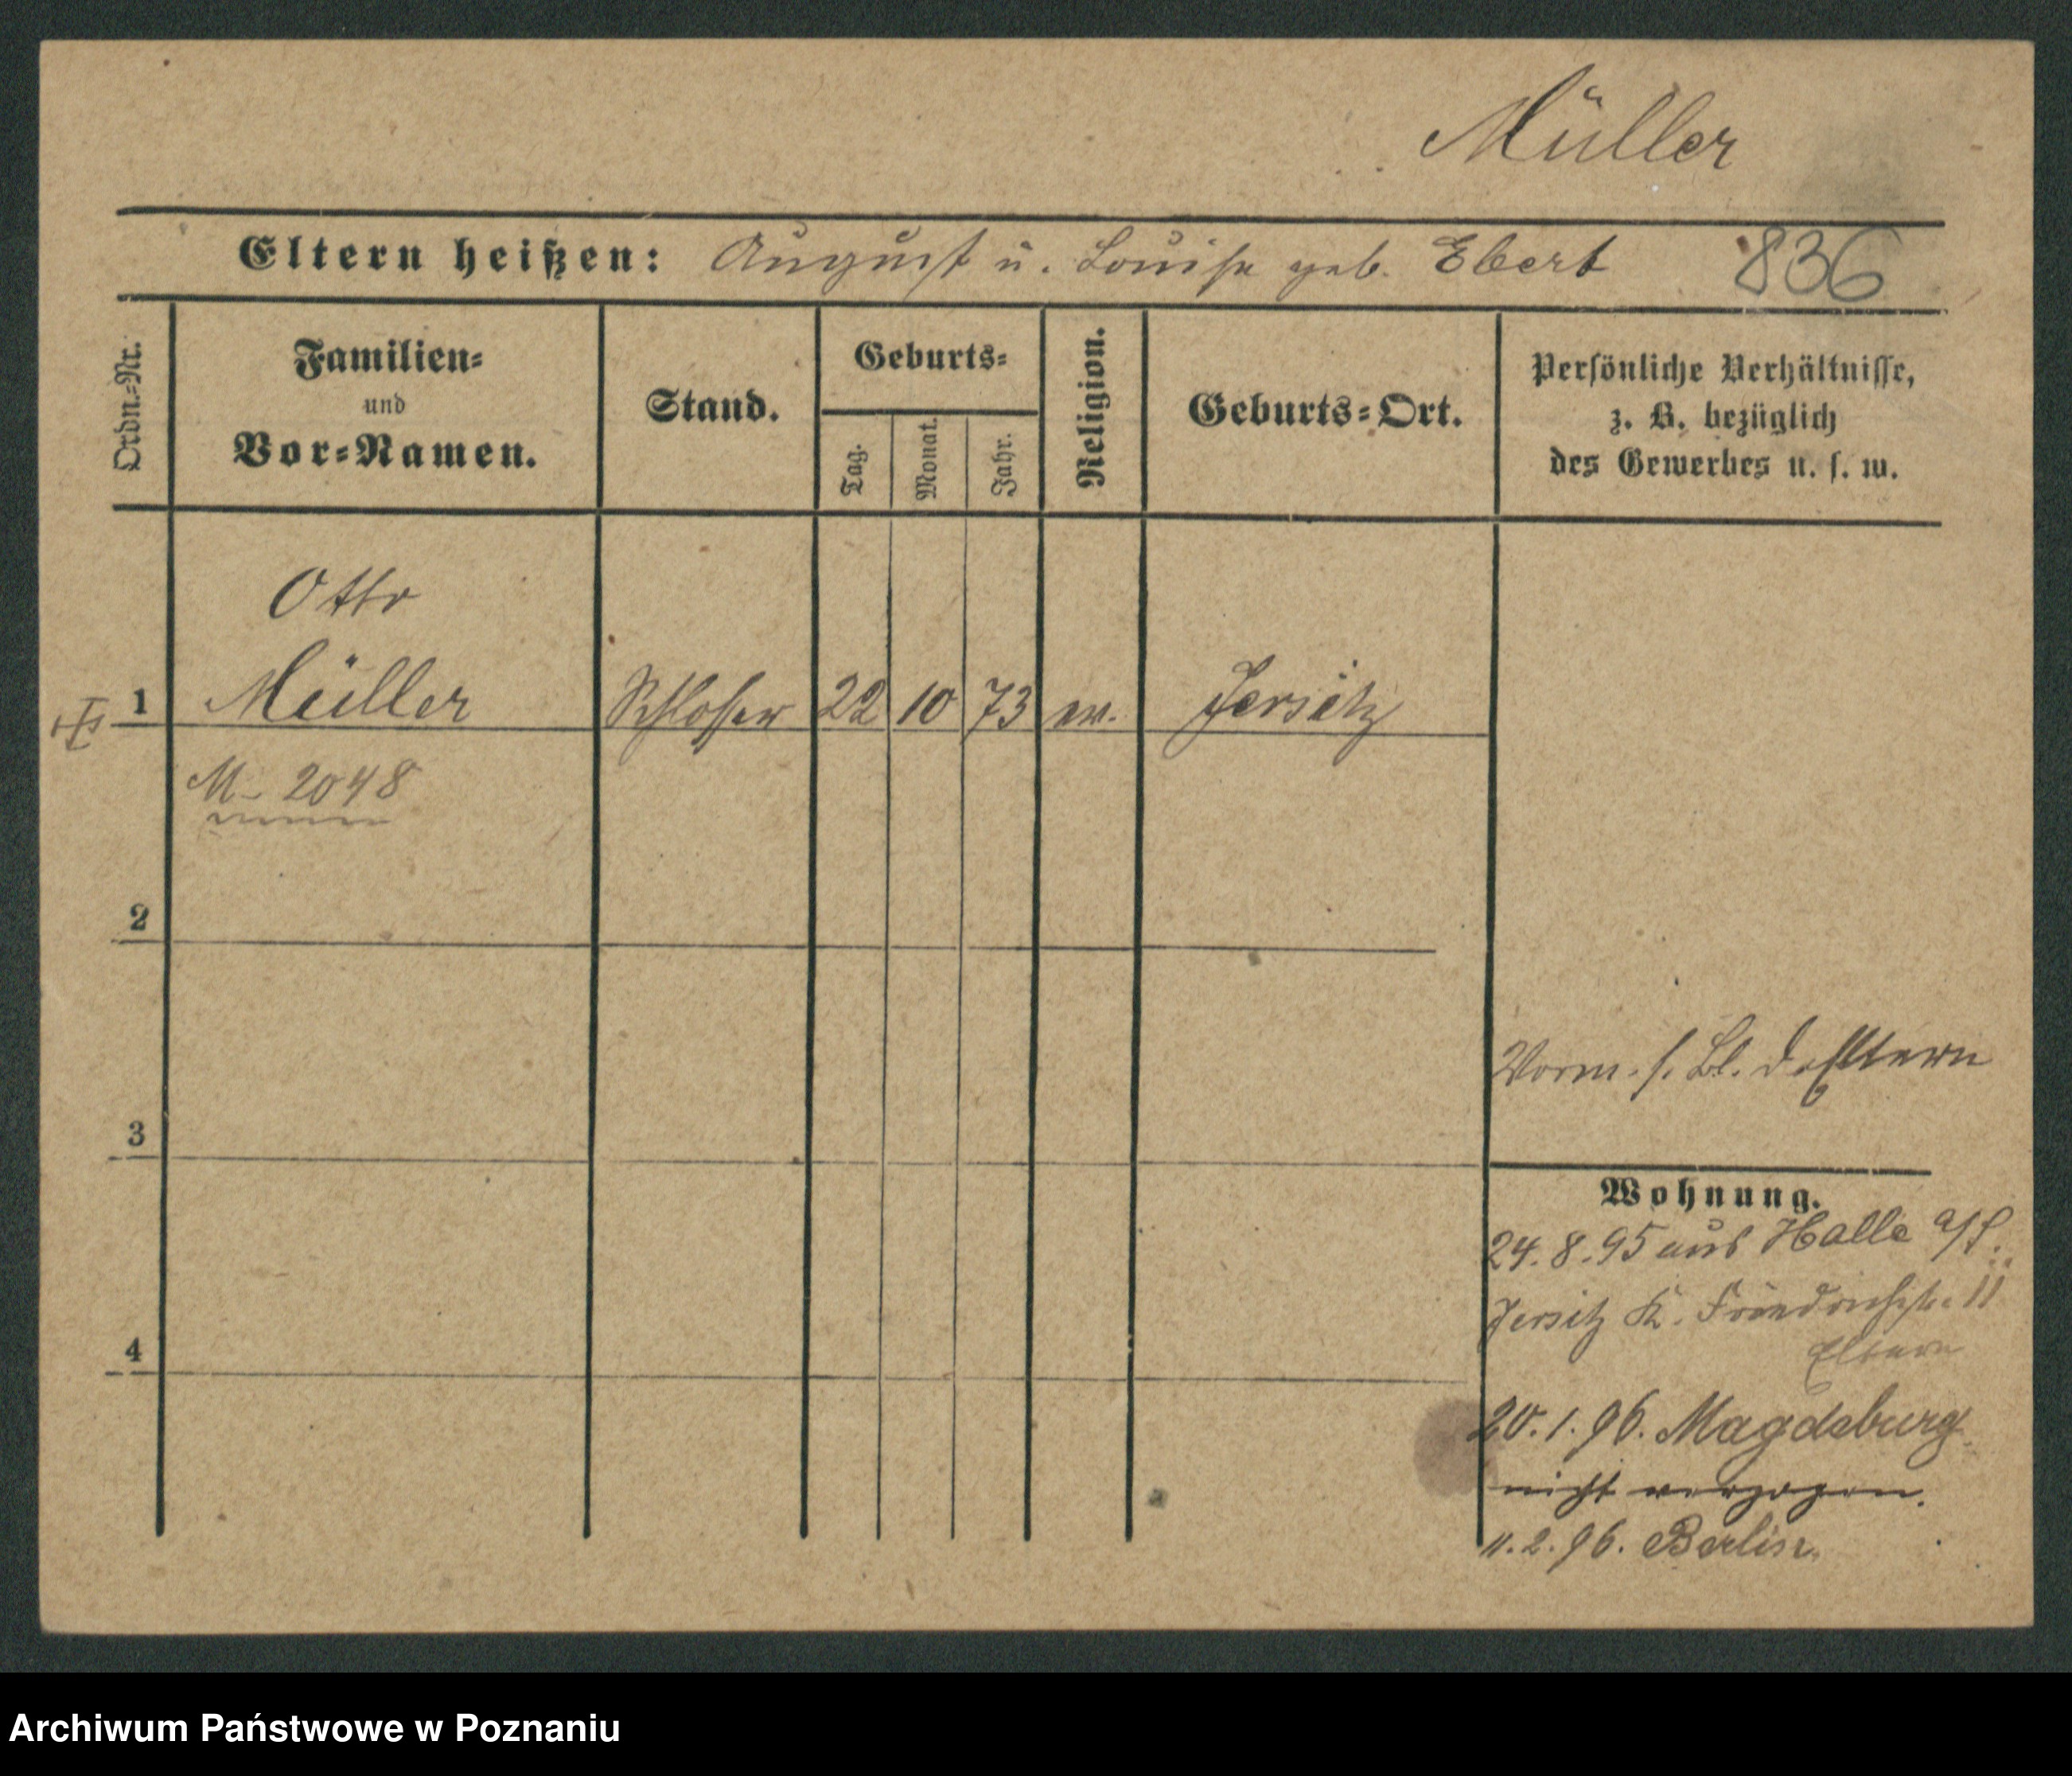 Müller
Eltern heißen: August u. Louise geb. Ebert 836
Ordn.-Nr.
Familien-
und
Vor-Namen.
Stand.
Geburts-
Tag.
Monat.
Jahr.
Religion.
Geburts-Ort.
Persönliche Verhältnisse,
z. B. bezüglich
des Gewerbes u. s. w.
Otto
1 Müller Schlosser 22 10 73 ev. Jersitz
M- 2048
2
Vorm. s. Bl. d. Eltern
3
Wohnung.
24. 8. 95 aus Halle a/S.
Jersitz K. Friedrichstr. 11
Eltern
4
20. 1. 96. Magdeburg
nicht verzogen.
11. 2. 96. Berlin.
Archiwum Państwowe w Poznaniu